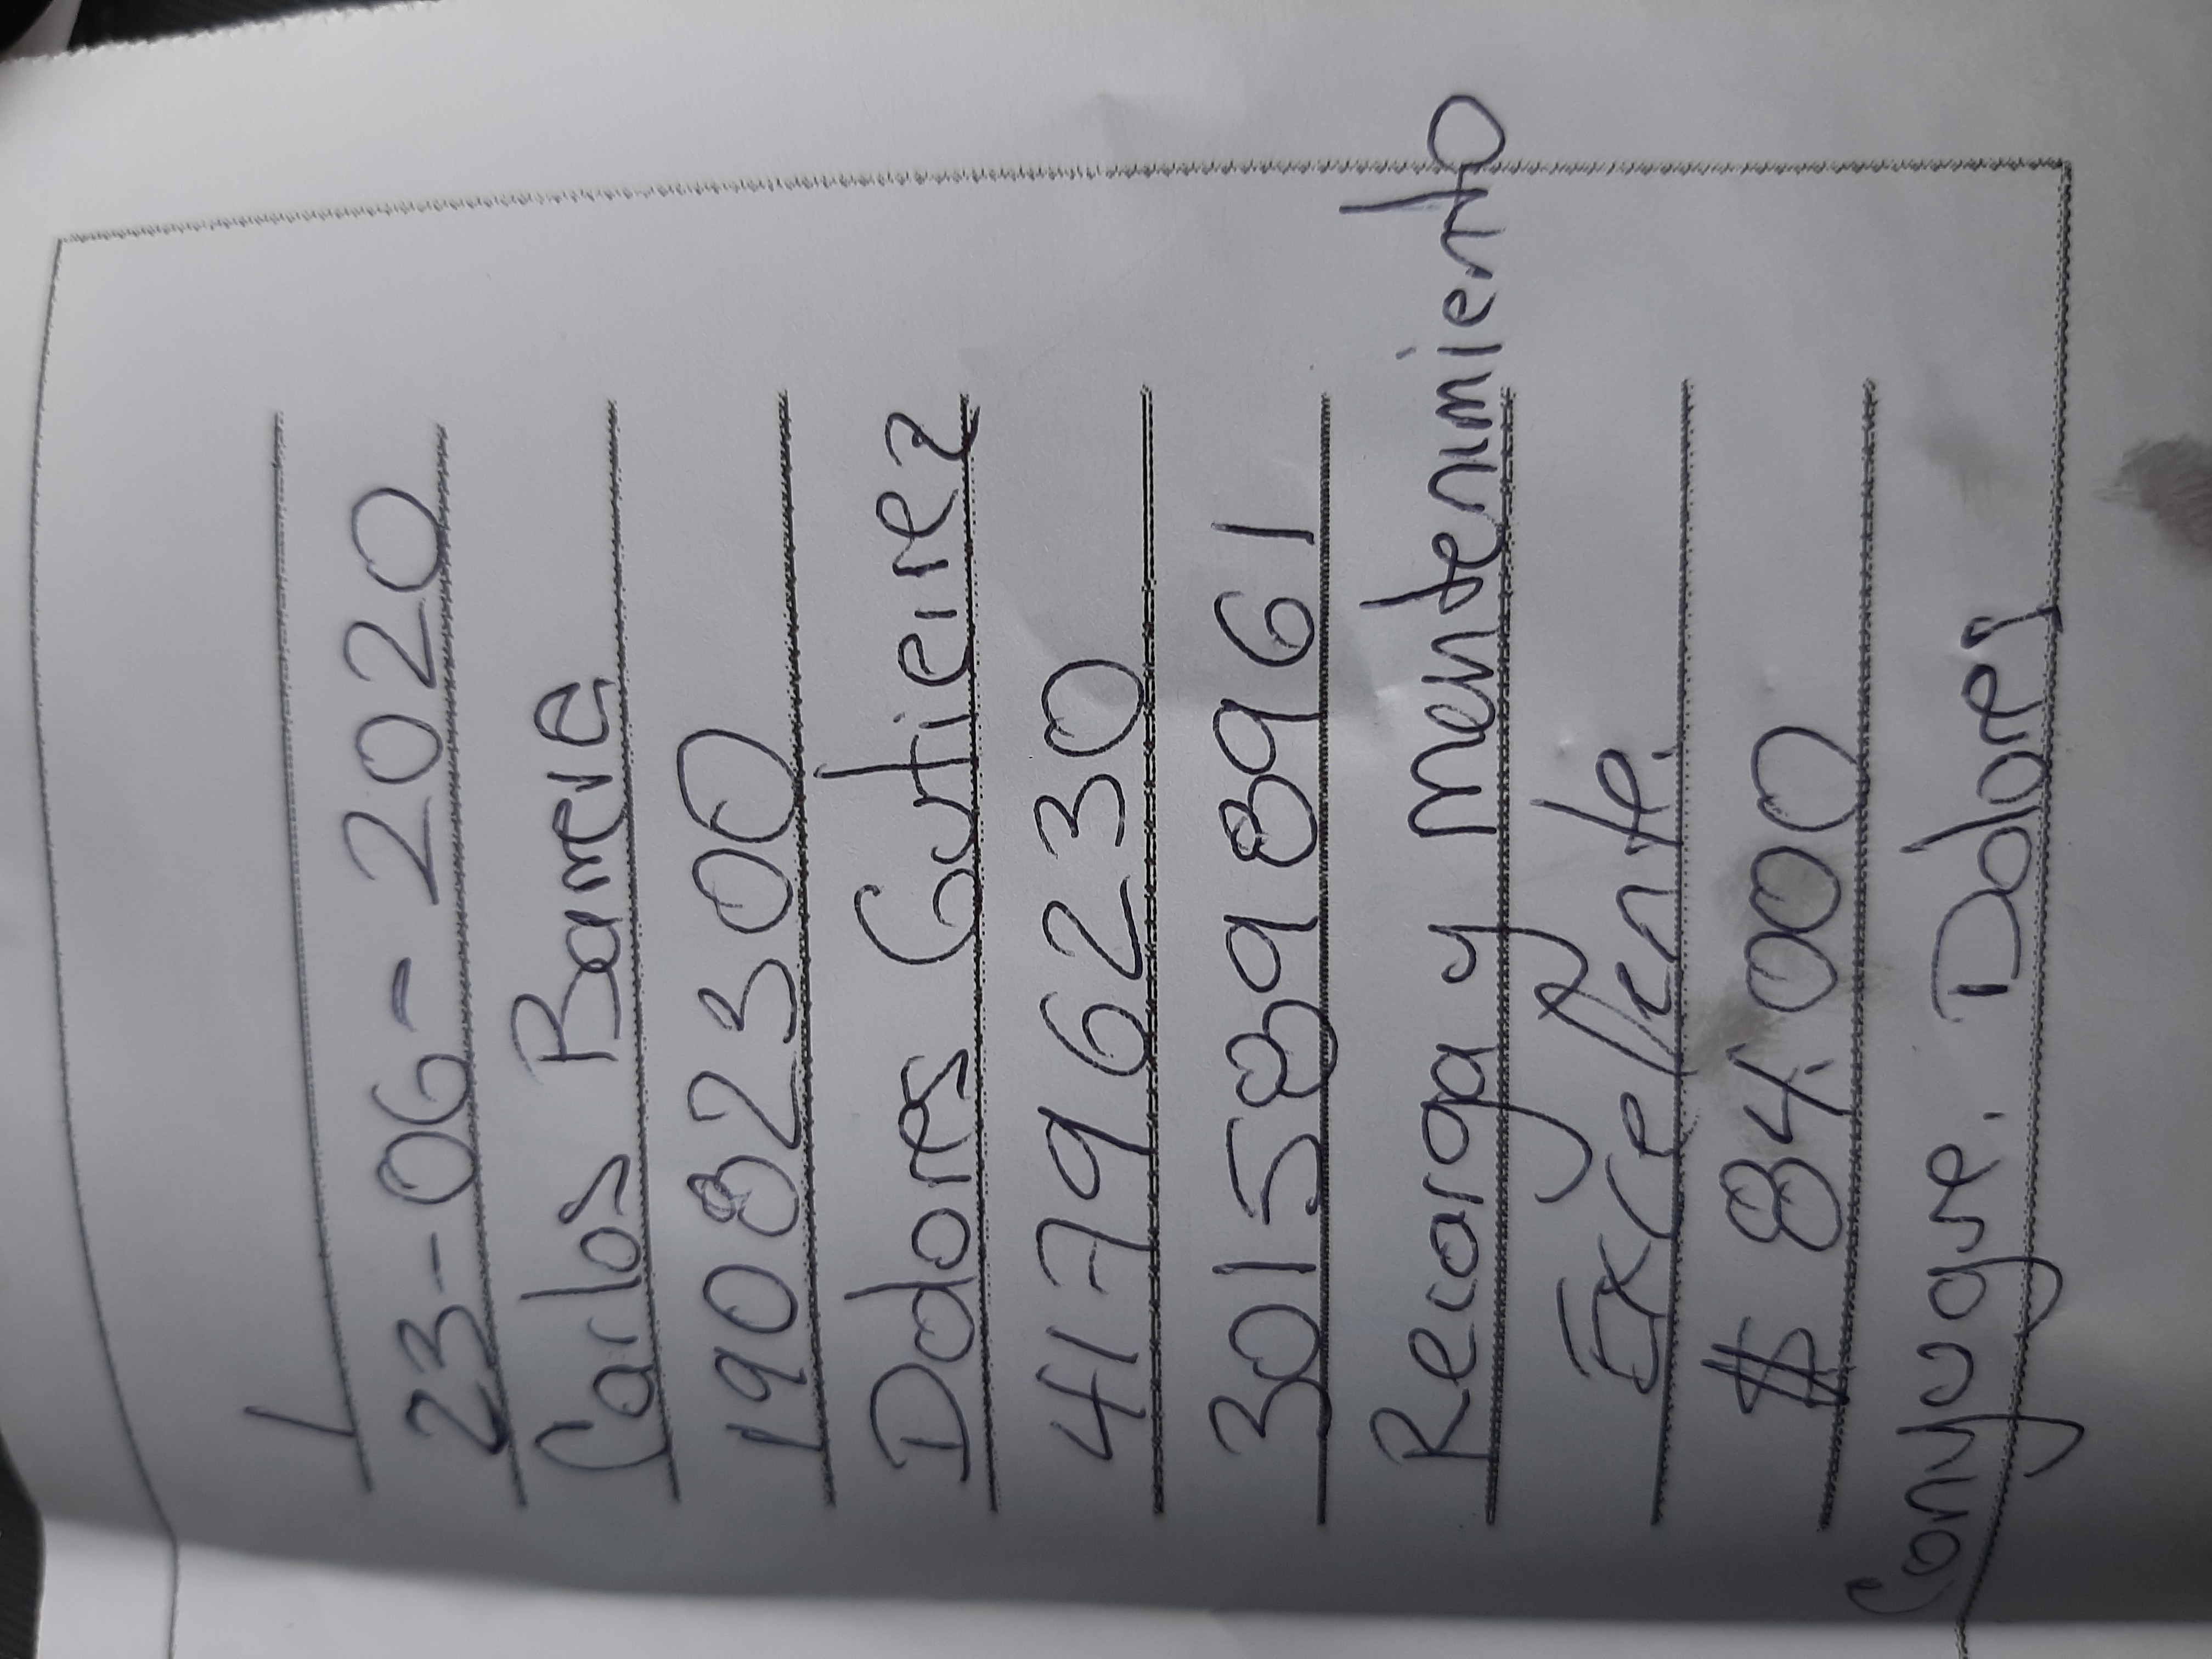 1
23-06-2020
Carlos Barrera
19082300
Dolores Gutierrez
41796230
3015898961
Recarga y mantenimiento
Excellente.
$ 84.000
Conyugue. Dolores